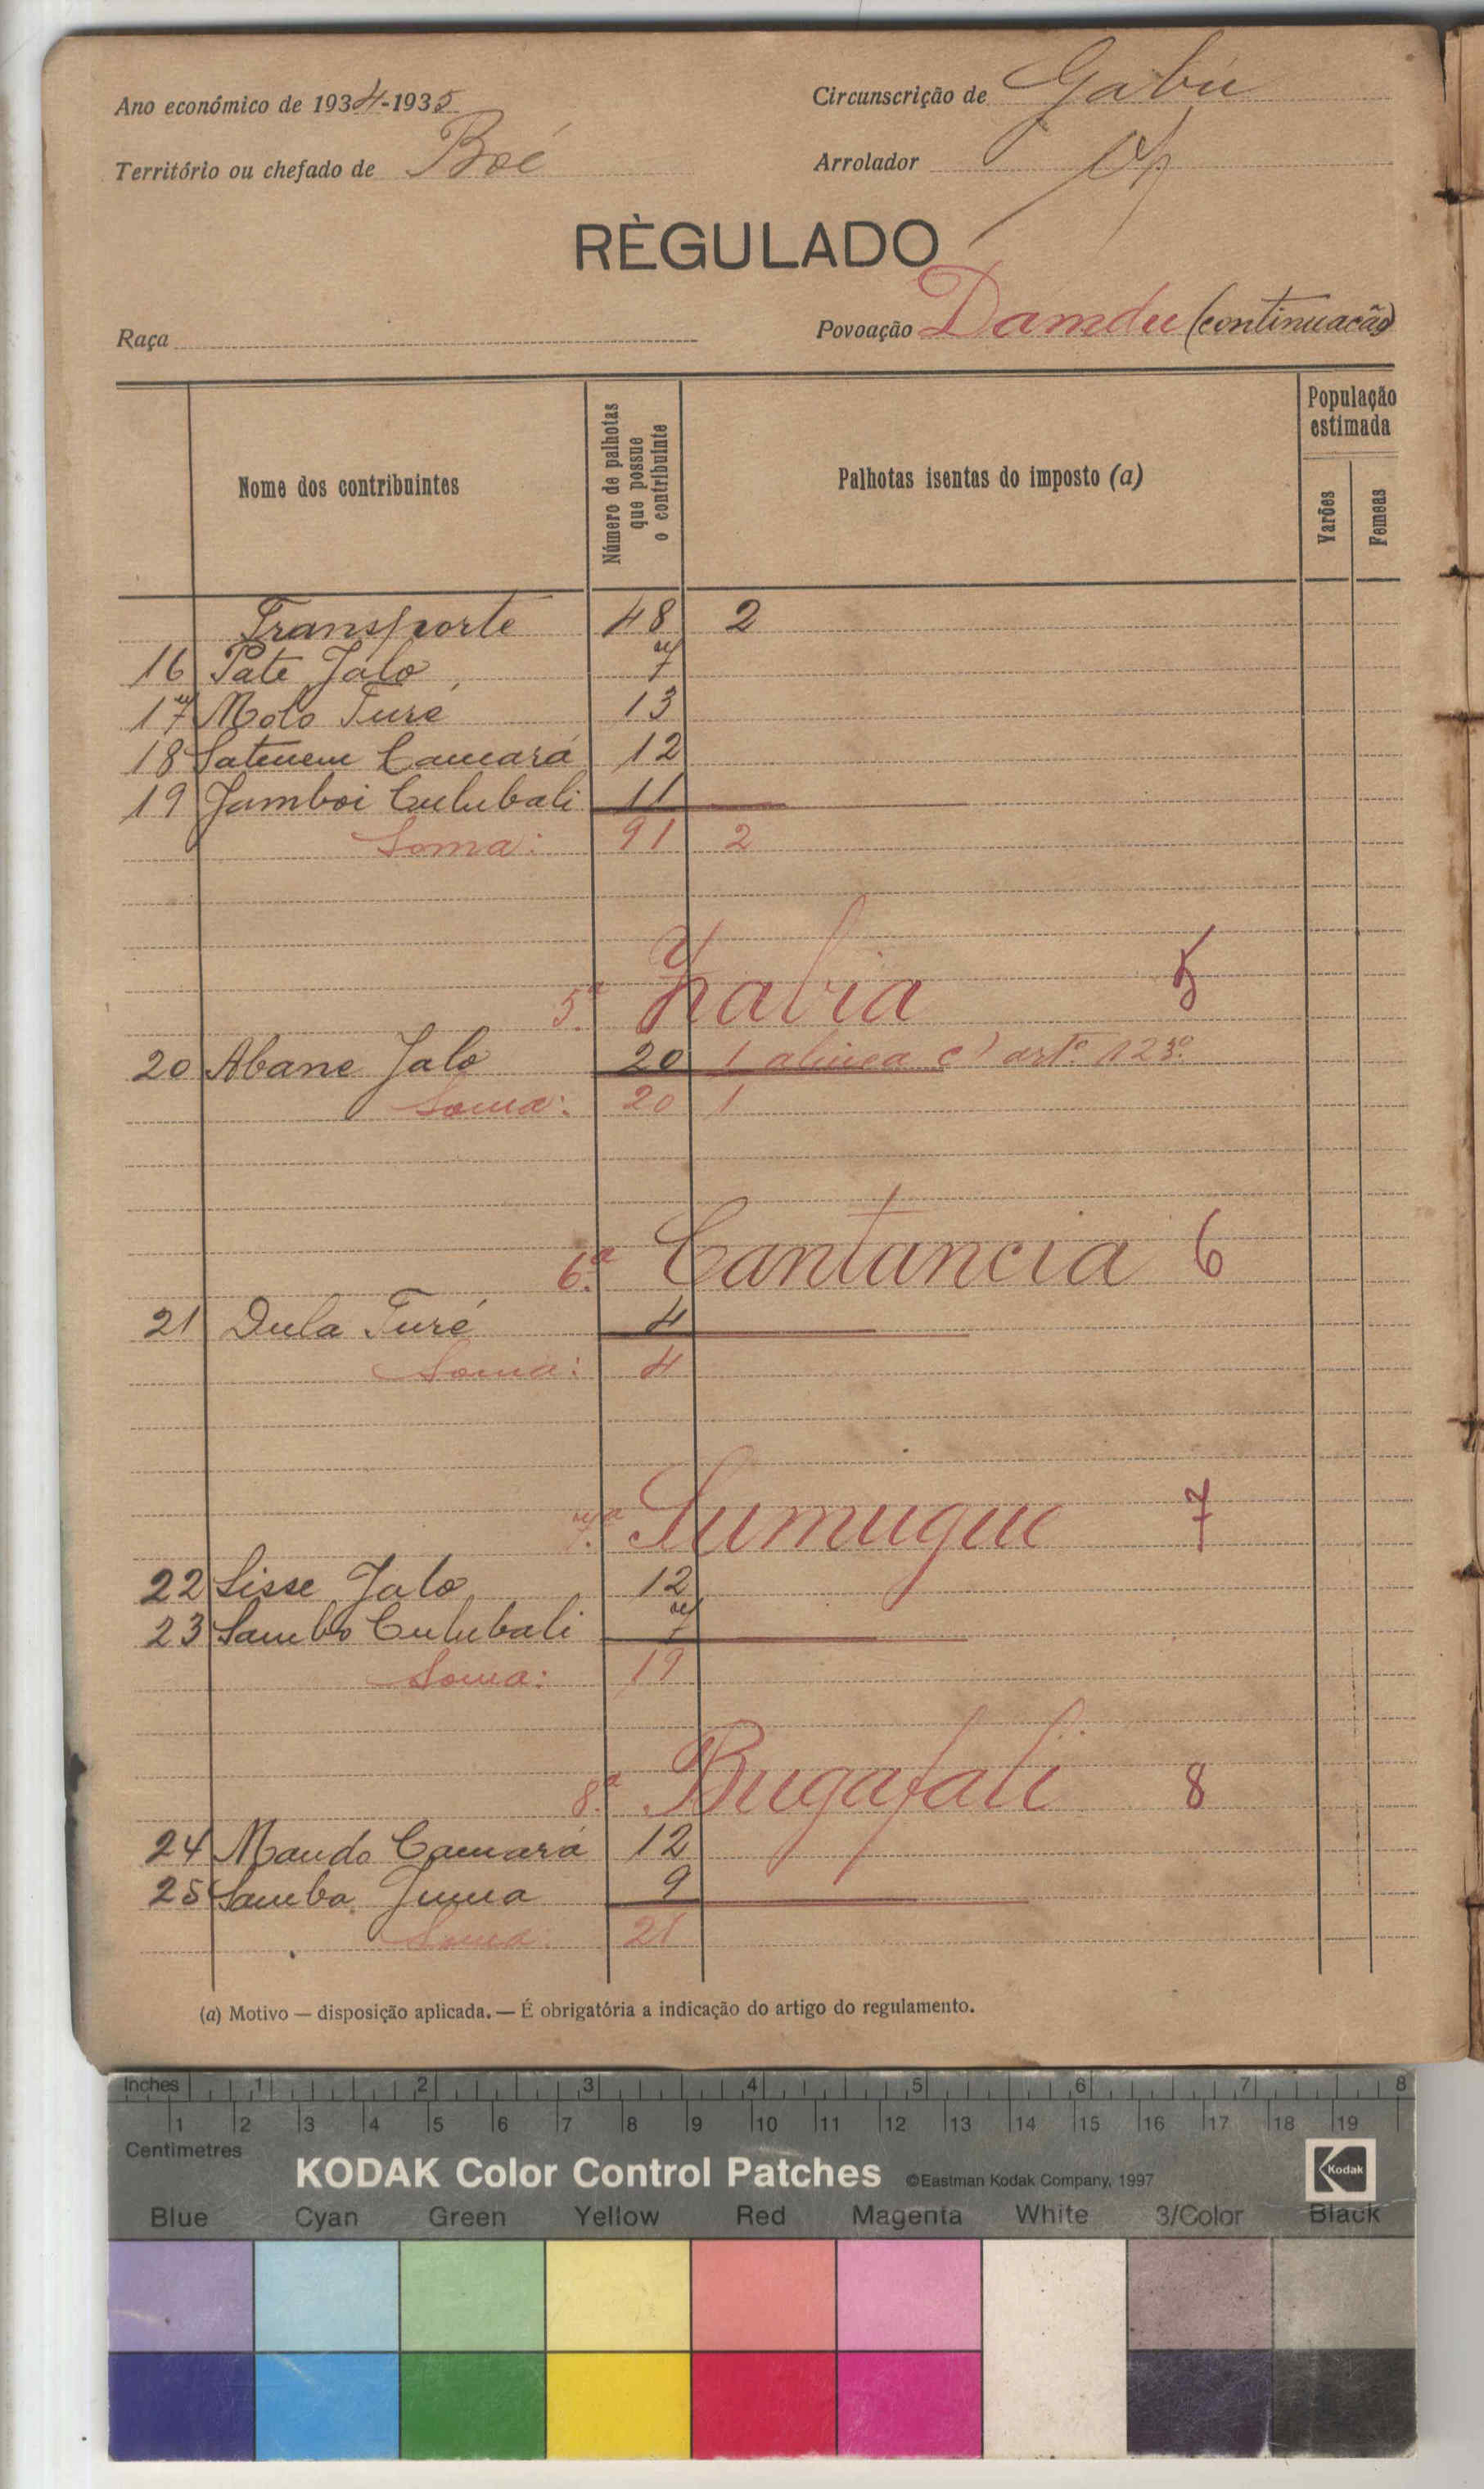 Ano económico de 1934-1935
Circunscrição de Gabú
Território ou chefado de Boé
Arrolador
RÈGULADO
Raça
Povoação Damdu (continuacão)
Nome dos contribuintes
Número de palhotas que possue o contribuinte
Palhotas isentas do imposto (a)
População estimada
Varões
Femeas
Transporte 48 2
16 Pate Jalo 7
17 Molo Turé 13
18 Satenem Camará 12
19 Jamboi Culubali 11
Soma: 91 2
5.ª Habia 5
20 Abane Jalo 20 1 alinea c) artº 123º
Soma: 20 1
6.ª Cantancia 6
21 Dula Turé 4
Soma: 4
7.ª Sumugue 7
22 Sisse Jalo 12
23 Sambo Culubali 7
Soma: 19
8.ª Bugafali 8
24 Maudo Camará 12
25 Samba Juma 9
Soma: 21
(a) Motivo — disposição aplicada. — É obrigatória a indicação do artigo do regulamento.
Inches 1 2 3 4 5 6 7 8
1 2 3 4 5 6 7 8 9 10 11 12 13 14 15 16 17 18 19
Centimetres
KODAK Color Control Patches ©Eastman Kodak Company, 1997 Kodak
Blue Cyan Green Yellow Red Magenta White 3/Color Black